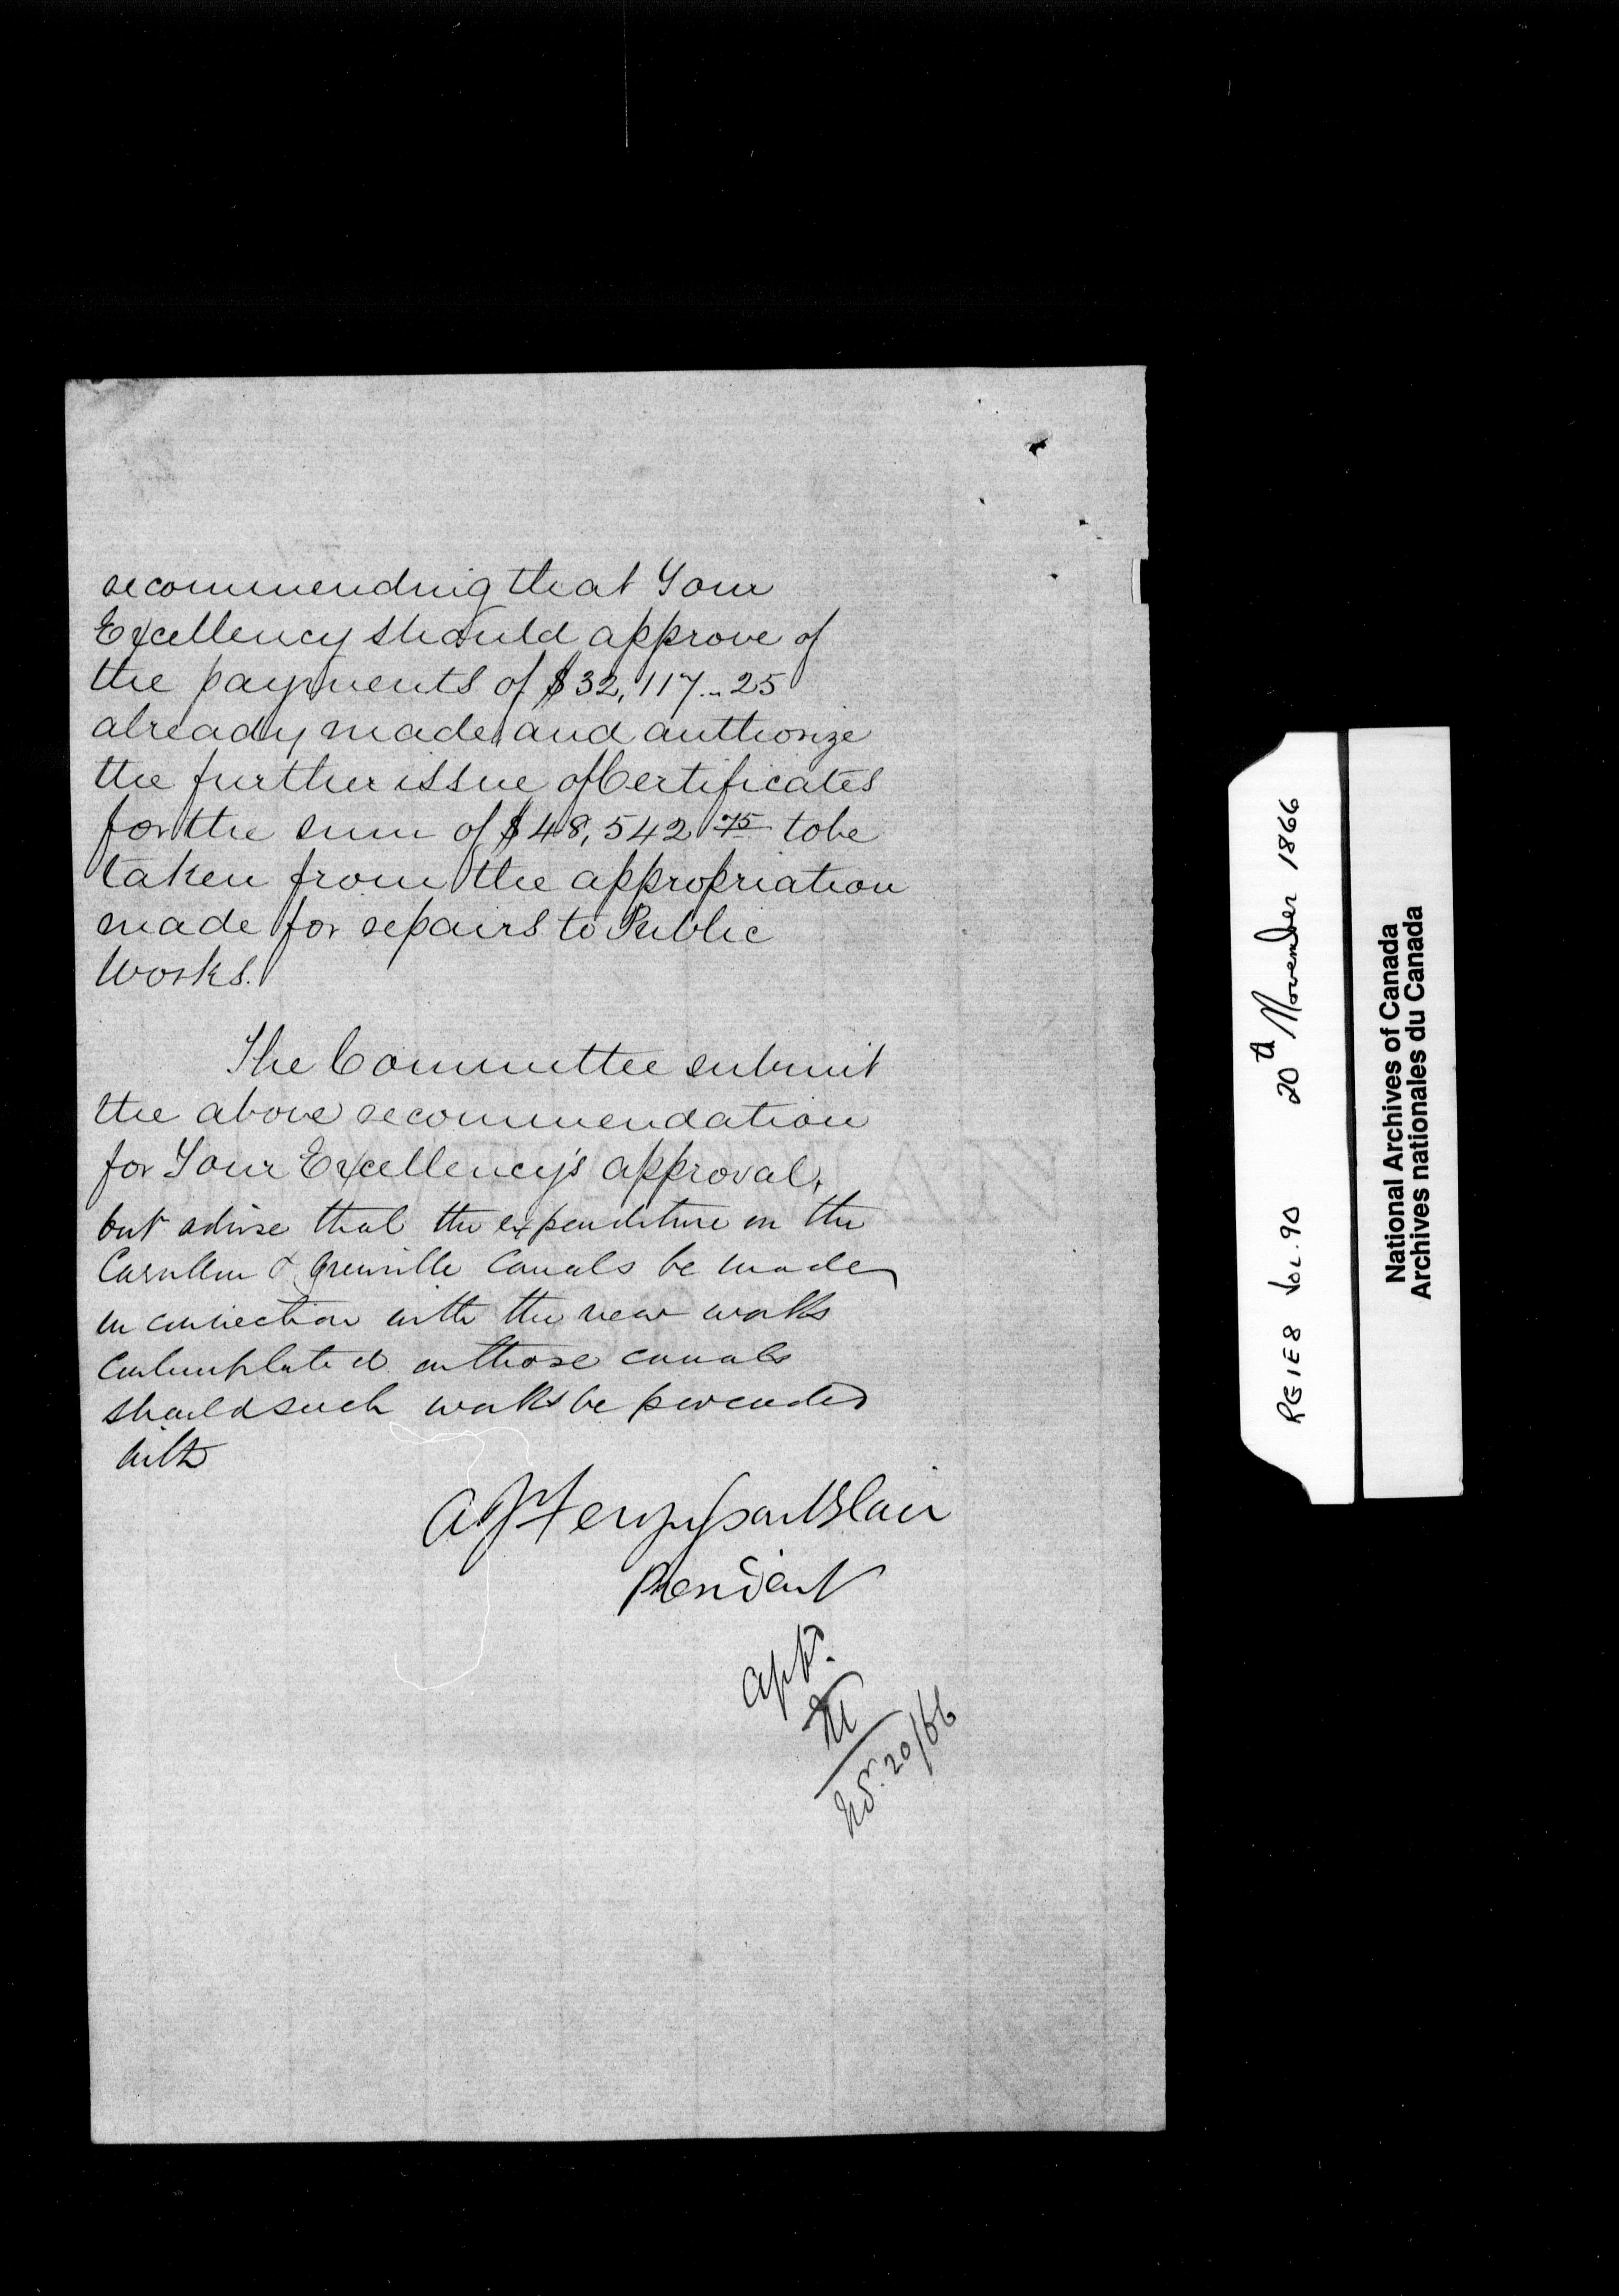 recommending that Your
Excellency should approve of
the payments of $32,117..25
already made and authorize
the further issue of Certificates
for the sum of $48,542 75 to be
taken from the appropriation
made for repairs to Public
Works.
The Committee submit
the above recommendation
for Your Excellency's approval,
but advise that the expenditure on the
Carillon & Grenville Canals be made
in connection with the new works
contemplated on those canals
should such works be proceeded
with
A J Fergusson Blair
President
Appd.
M
Nov. 20/66
RG1E8 Vol. 90 20th November 1866
National Archives of Canada
Archives nationales du Canada